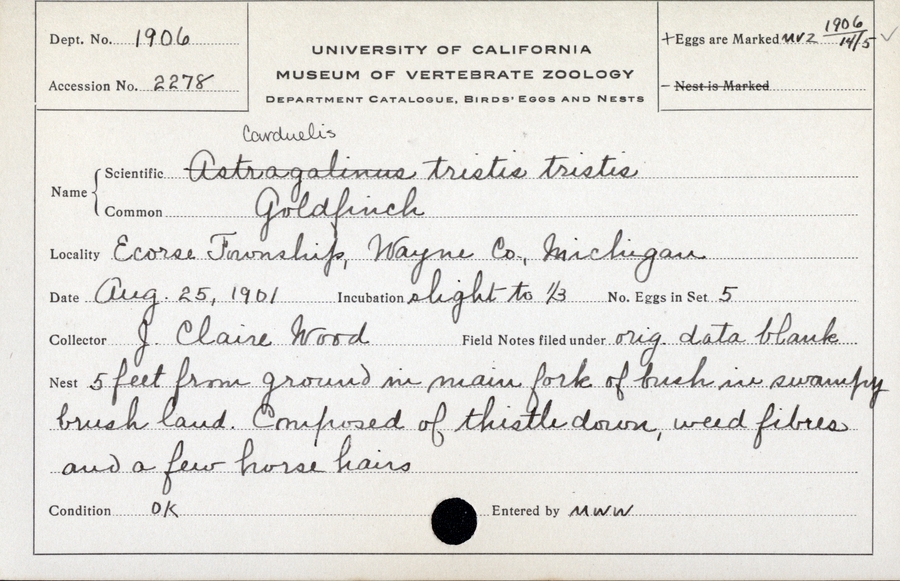 Dept. No. 1906
Accession No. 2278
UNIVERSITY OF CALIFORNIA
MUSEUM OF VERTEBRATE ZOOLOGY
DEPARTMENT CATALOGUE, BIRDS' EGGS AND NESTS
+Eggs are Marked MVZ 1906 14/5 ✓
– Nest is Marked
Carduelis
Name
Scientific Astragalinus tristis tristis
Common Goldfinch
Locality Ecorse Township, Wayne Co., Michigan
Date Aug. 25, 1901 Incubation slight to 1/3 No. Eggs in Set 5
Collector J. Claire Wood Field Notes filed under orig. data blank
Nest 5 feet from ground in main fork of bush in swampy
brush land. Composed of thistledown, weed fibres
and a few horse hairs
Condition OK Entered by MWW